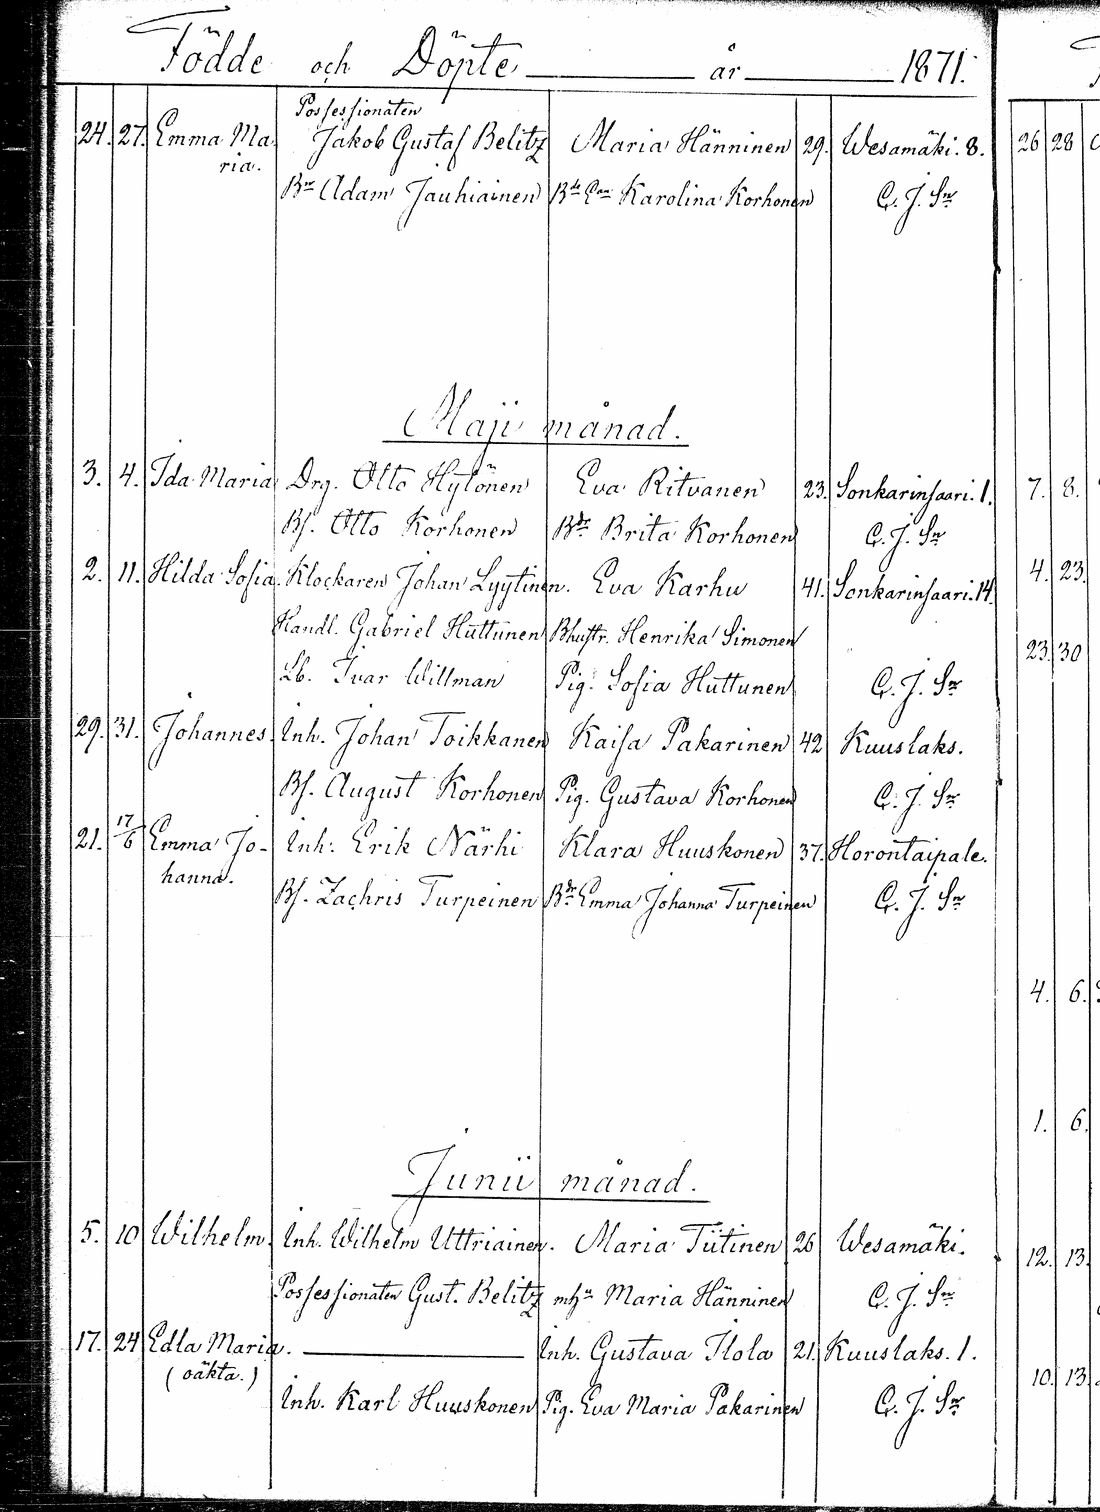 Födde och Döpte år 1871.
Possessionaten
24. 27. Emma Ma- Jakob Gustaf Belitz Maria Hänninen 29. Wesamäki. 8.
ria. Bn Adam Jauhiainen Bde Karolina Korhonen C. J. Sn
Maji månad.
3. 4. Ida Maria Drg. Otto Hylönen Eva Ritvanen 23. Sonkarinsaari. 1.
Bs. Otto Korhonen Bdr Brita Korhonen C. J. Sn
2. 11. Hilda Sofia. Klockaren Johan Lyytinen. Eva Karhu 41. Sonkarinsaari. 14.
Handl. Gabriel Huttunen Bhustr. Henrika Simonen
Lb. Ivar Willman Pig. Sofia Huttunen C. J. Sn
29. 31. Johannes. Inh. Johan Toikkanen Kaisa Pakarinen 42 Kuuslaks.
Bs. August Korhonen Pig. Gustava Korhonen C. J. Sn
21. 17/6 Emma Jo- Inh. Erik Närhi Klara Huuskonen 37. Horontaipale.
hanna. Bs. Zachris Turpeinen Bdr Emma Johanna Turpeinen C. J. Sn
Junii månad.
5. 10 Wilhelm. Inh. Wilhelm Uttriainen. Maria Tiitinen 26 Wesamäki.
Possessionaten Gust. Belitz Maria Hänninen C. J. Sn
17. 24 Edla Maria. Inh. Gustava Ilola 21. Kuuslaks. 1.
(oäkta.) Inh. Karl Huuskonen Pig. Eva Maria Pakarinen C. J. Sn
26 28
7. 8.
4. 23.
23. 30
4. 6.
1. 6.
12. 13.
10. 13.